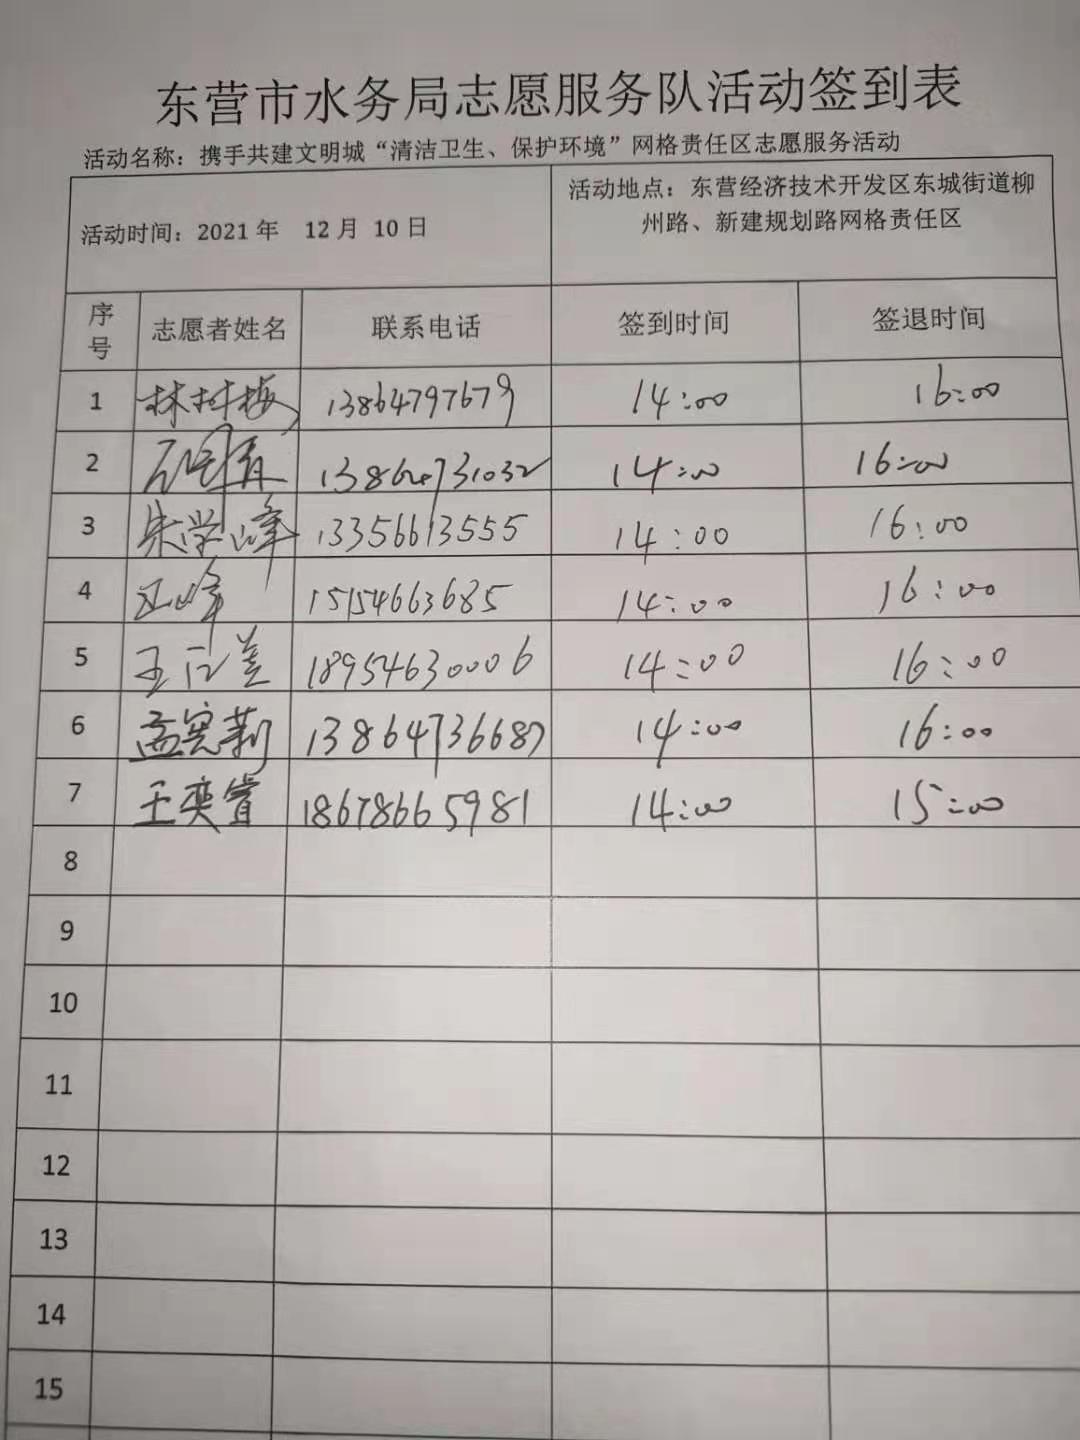 东营市水务局志愿服务队活动签到表
活动名称：携手共建文明城“清洁卫生、保护环境”网格责任区志愿服务活动
活动时间：2021年 12月 10日
活动地点：东营经济技术开发区东城街道柳
州路、新建规划路网格责任区
序号 志愿者姓名 联系电话 签到时间 签退时间
1 林树梅 13864797679 14:00 16:00
2 13864731032 14:00 16:00
3 朱学峰 13356613555 14:00 16:00
4 15154663685 14:00 16:00
5 王 18954630006 14:00 16:00
6 孟宪莉 13864736687 14:00 16:00
7 王奕睿 18678665981 14:00 15:00
8
9
10
11
12
13
14
15